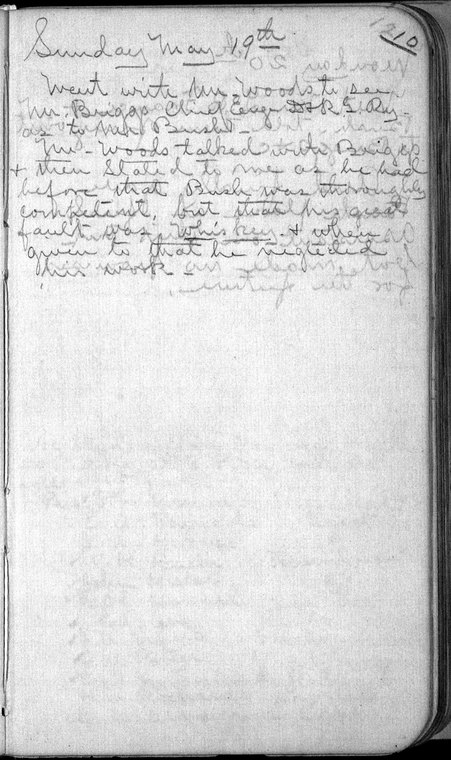 1210
Sunday May 19th
Went with Mr. Woods to see
Mr. Briggs Chief Engr D+R G Ry-
as to Mr Bush -
Mr - Woods talked with Briggs
+ then stated to me as he had
before that Bush was thoroughly
competent, but that his great
fault was whiskey - + when
given to that he neglected
his work -